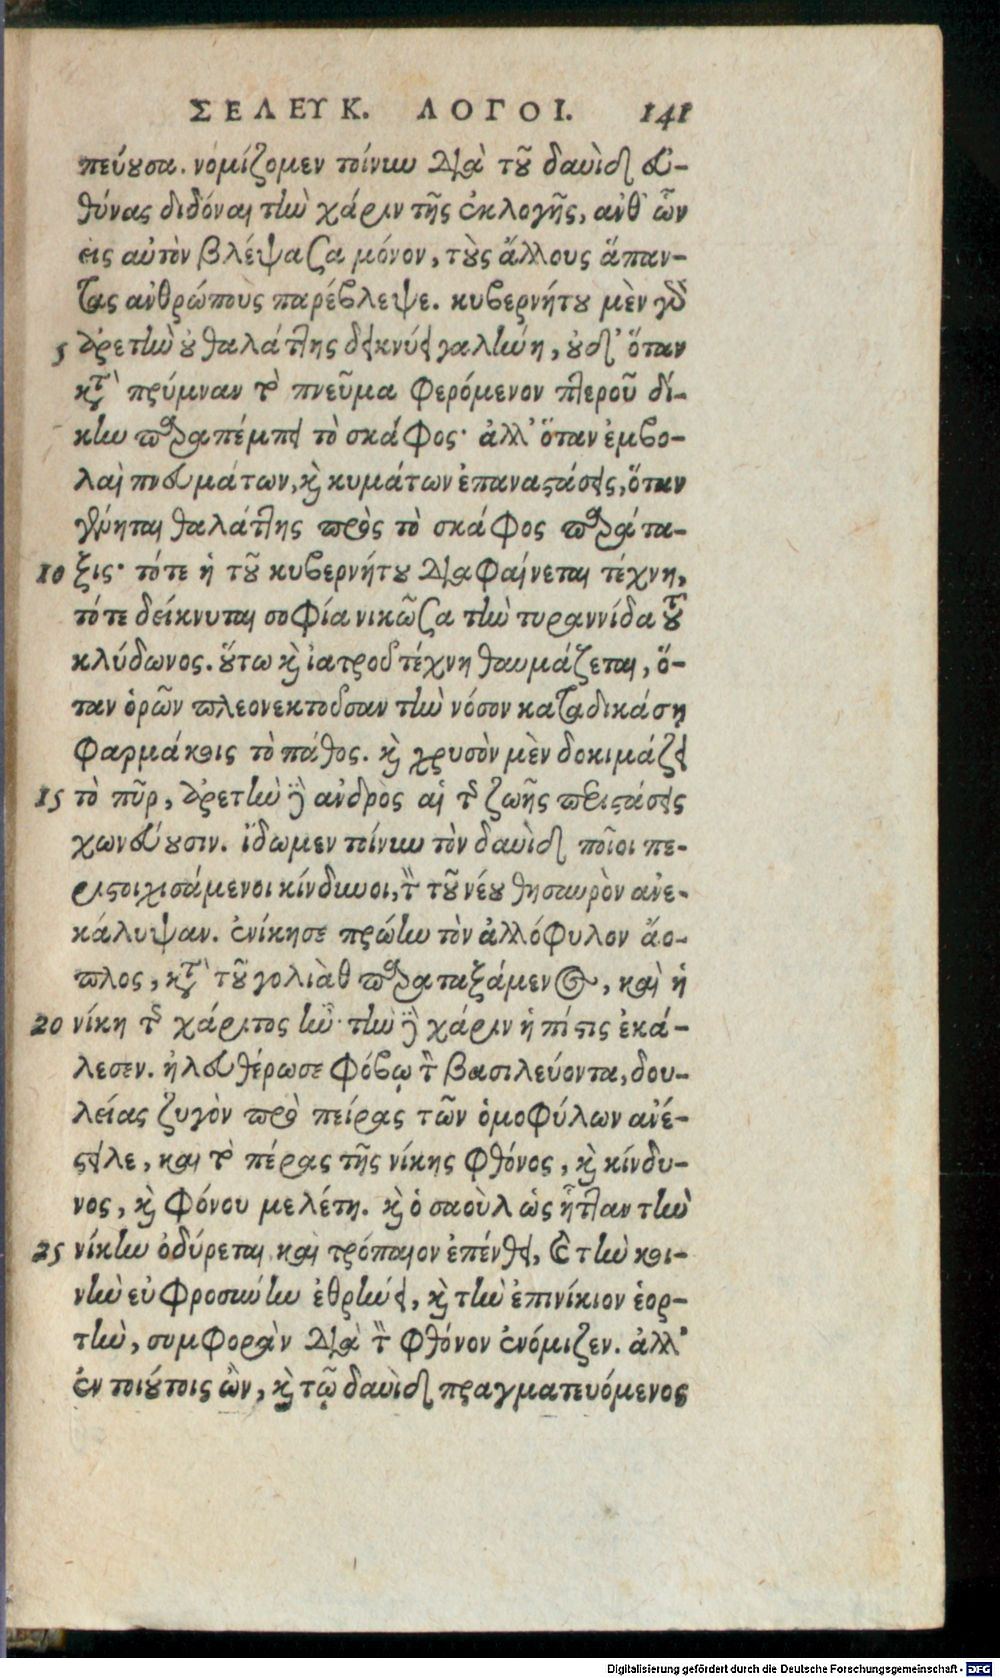 ΣΕΛΕΥΚ. ΛΟΓΟΙ. 141
πεύουσα. νομίζομεν τοίνυν διὰ τοῦ δαυὶδ εὐ-
θύνας διδόναι τὴν χάριν τῆς ἐκλογῆς, ἀνθ' ὧν
εἰς αὐτὸν βλέψασα μόνον, τοὺς ἄλλους ἅπαν-
τας ἀνθρώπους παρέβλεψε. κυβερνήτου μὲν γὰρ
5 ἀρετὴν οὐ θαλάττης δεικνύει γαλήνη, οὐδ' ὅταν
κατὰ πρύμναν τὸ πνεῦμα φερόμενον πτεροῦ δί-
κην παραπέμπει τὸ σκάφος· ἀλλ' ὅταν ἐμβο-
λαὶ πνευμάτων, καὶ κυμάτων ἐπαναστάσεις, ὅταν
γένηται θαλάττης πρὸς τὸ σκάφος παράτα-
10 ξις· τότε ἡ τοῦ κυβερνήτου διαφαίνεται τέχνη,
τότε δείκνυται σοφία νικῶσα τὴν τυραννίδα τοῦ
κλύδωνος. οὕτω καὶ ἰατροῦ τέχνη θαυμάζεται, ὅ-
ταν ὁρῶν πλεονεκτοῦσαν τὴν νόσον καταδικάσῃ
φαρμάκοις τὸ πάθος. καὶ χρυσὸν μὲν δοκιμάζει
15 τὸ πῦρ, ἀρετὴν δὲ ἀνδρὸς αἱ τῆς ζωῆς περιστάσεις
χωνεύουσιν. ἴδωμεν τοίνυν τὸν δαυὶδ ποῖοι πε-
ριστοιχισάμενοι κίνδυνοι, τὸν τοῦ νέου θησαυρὸν ἀνε-
κάλυψαν. ἐνίκησε πρώην τὸν ἀλλόφυλον ἄο-
πλος, κατὰ τοῦ γολιὰθ παραταξάμενος, καὶ ἡ
20 νίκη τῆς χάριτος ἦν· τὴν δὲ χάριν ἡ πίστις ἐκά-
λεσεν. ἠλευθέρωσε φόβῳ τὸν βασιλεύοντα, δου-
λείας ζυγὸν πρὸ πείρας τῶν ὁμοφύλων ἀνέ-
στειλε, καὶ τὸ πέρας τῆς νίκης φθόνος, καὶ κίνδυ-
νος, καὶ φόνου μελέτη. καὶ ὁ σαοὺλ ὡς ἧτταν τὴν
25 νίκην ὀδύρεται καὶ τρόπαιον ἐπένθει, καὶ τὴν κοι-
νὴν εὐφροσύνην ἐθρήνει, καὶ τὴν ἐπινίκιον ἑορ-
τὴν, συμφορὰν διὰ τὸν φθόνον ἐνόμιζεν. ἀλλ'
ἐν τοιούτοις ὢν, καὶ τῷ δαυὶδ πραγματευόμενος
Digitalisierung gefördert durch die Deutsche Forschungsgemeinschaft - DFG